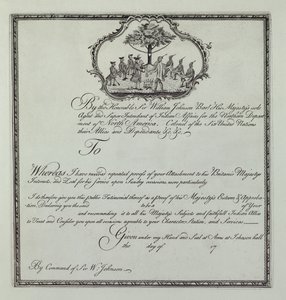 By the Honorable Sir William Johnson Bart. His Majesty's sole
Agent and Super Intendant of Indian Affairs for the Northern Depart
ment of North America, Colonel of the Six United Nations
their Allies and Dependants &c. &c.
To
Whereas I have received repeated proofs of your Attachment to his Britannic Majesty's
Interests, and Zeal for his service upon sundry occasions, more particularly
I do therefore give you this public Testimonial thereof as a proof of his Majesty's Esteem & Approba
tion, Declaring you the said to be a of Your
and recommending it to all his Majesty's Subjects and faithfull Indian Allies
to Treat and Consider you upon all occasions agreable to your Character, Station, and Services
Given under my Hand and Seal at Arms at Johnson hall
the day of 17
By Command of Sir W: Johnson